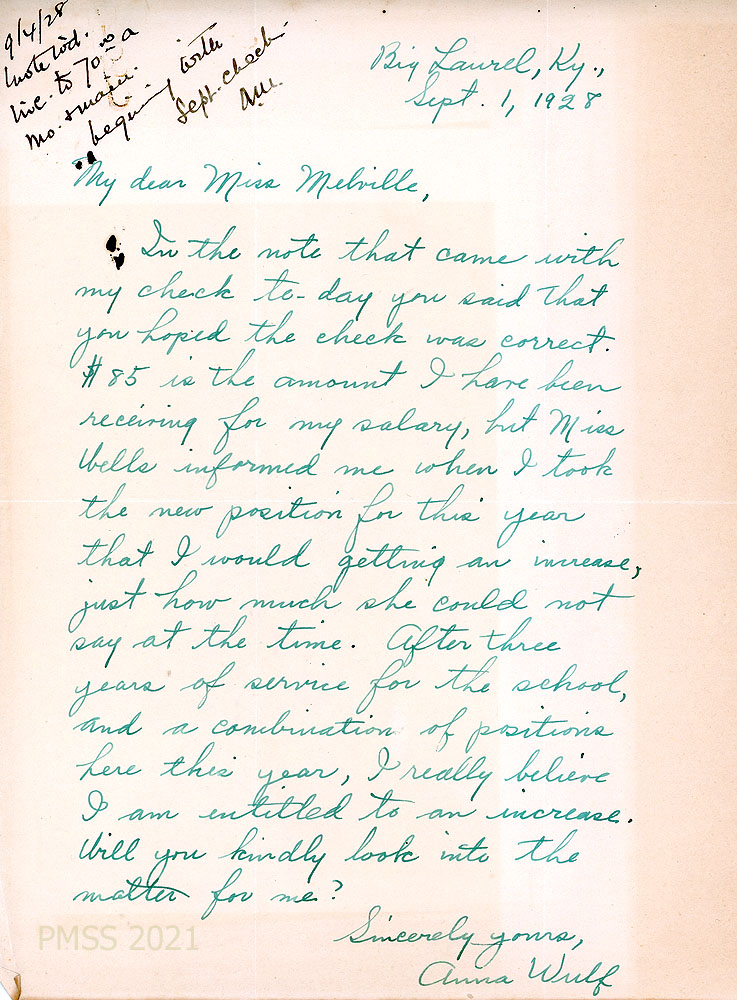 9/4/28
wrote
inc. to 70 00 a
mo.
beginning with
Sept. check -
Big Laurel, Ky.,
Sept. 1, 1928
My dear Miss Melville,
In the note that came with
my check to-day you said that
you hoped the check was correct.
$85 is the amount I have been
receiving for my salary, but Miss
Wells informed me when I took
the new position for this year
that I would getting an increase,
just how much she could not
say at the time. After three
years of service for the school,
and a combination of positions
here this year, I really believe
I am entitled to an increase.
Will you kindly look into the
matter for me?
Sincerely yours,
Anna Wulf
PMSS 2021